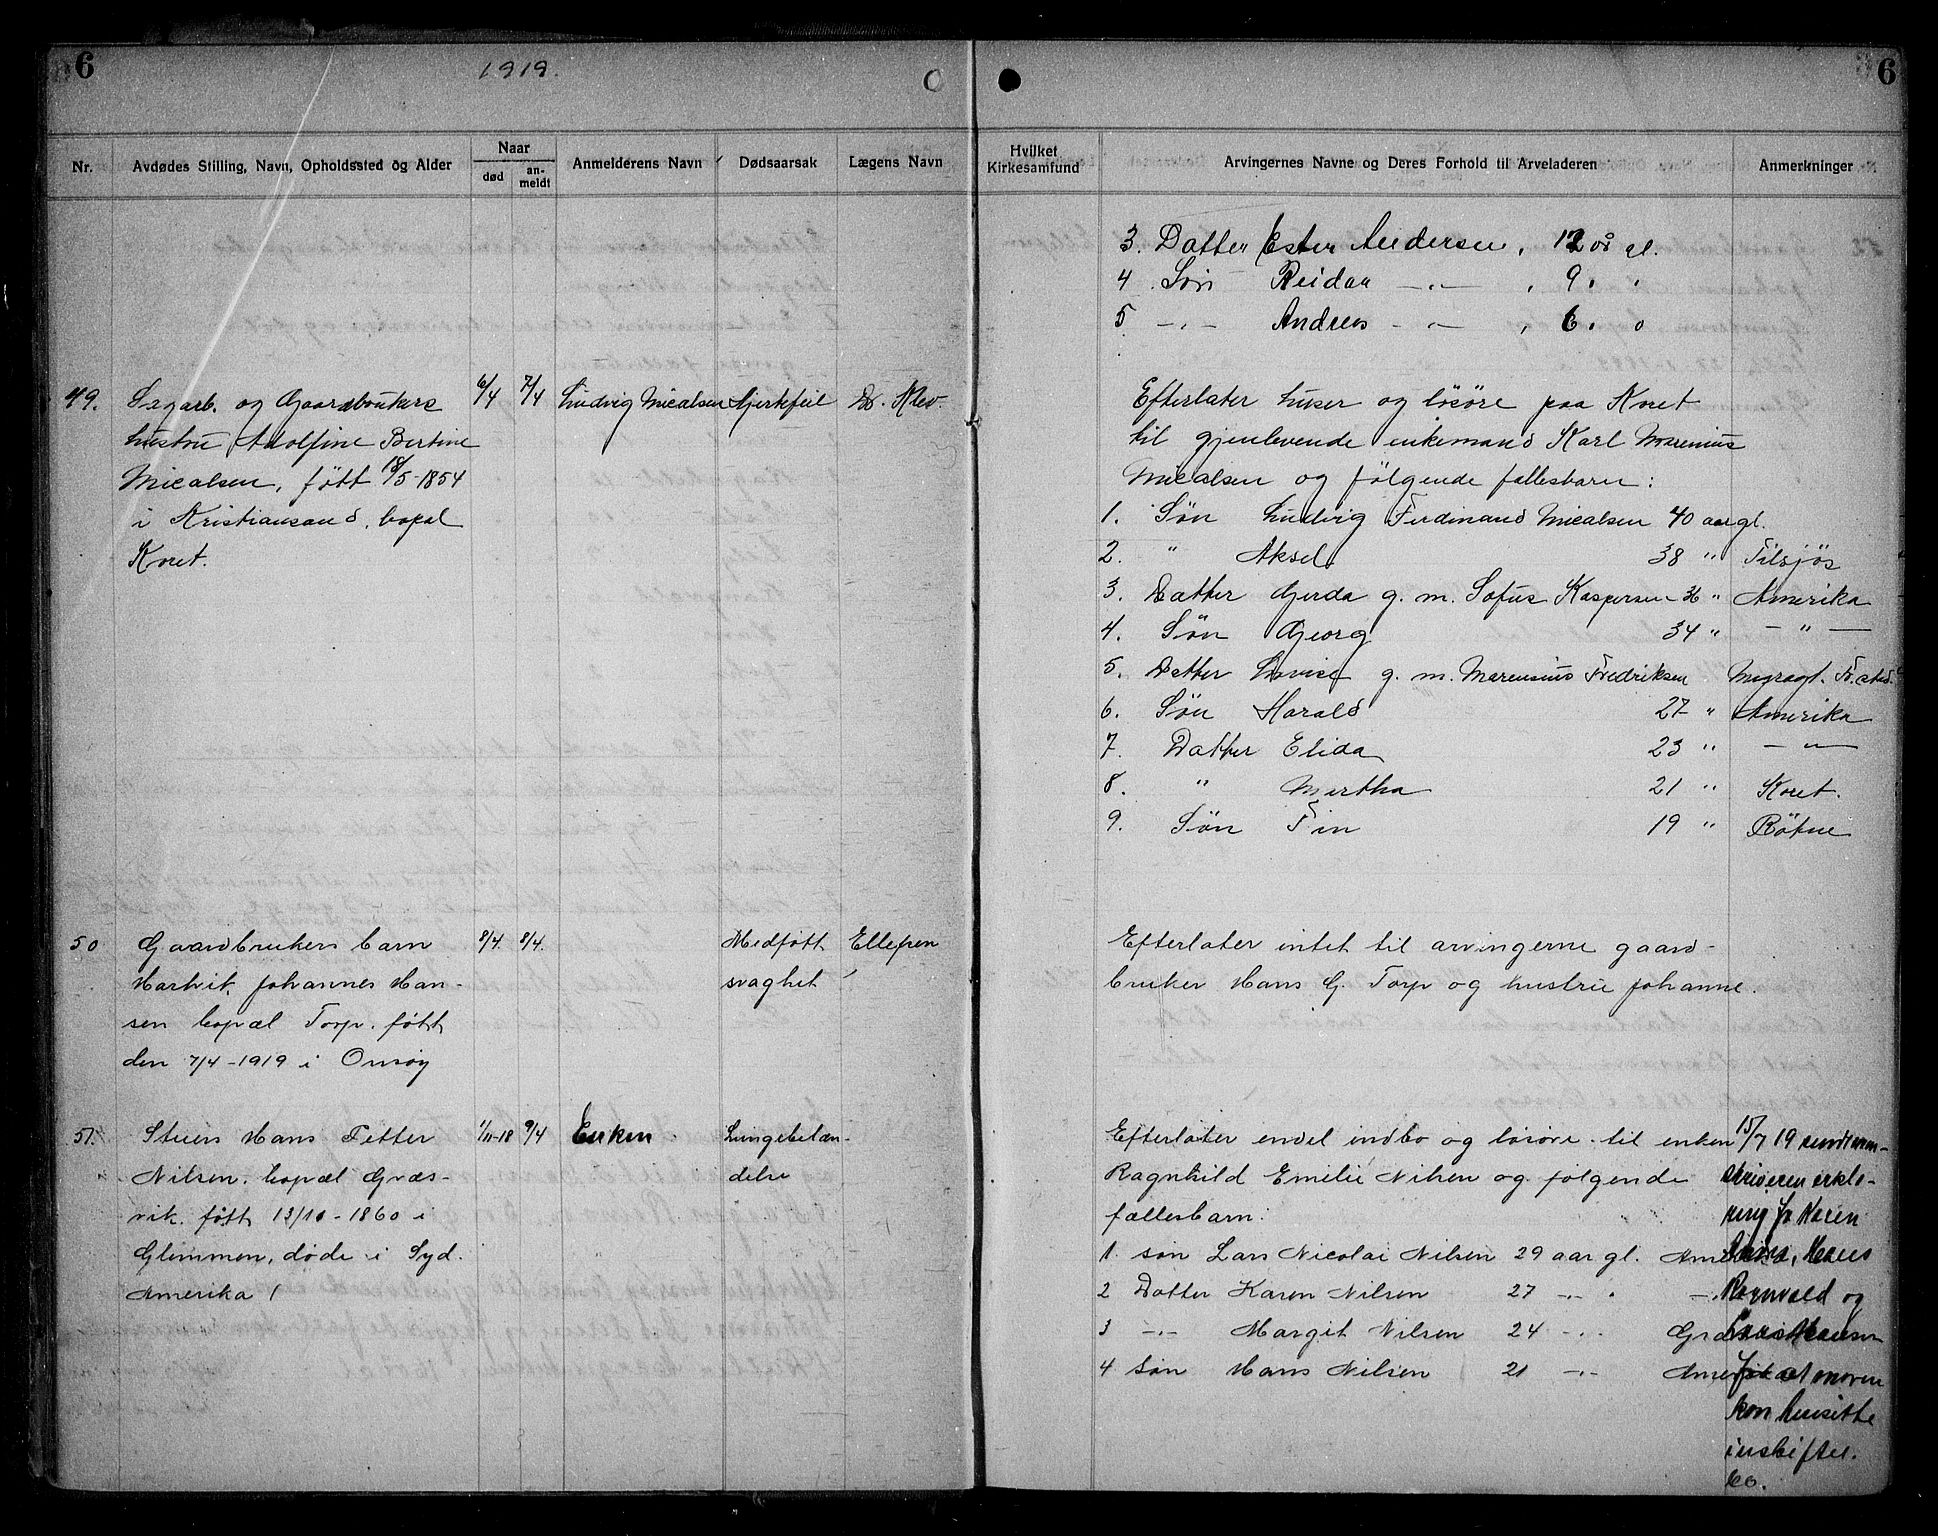 6
1919.
6
Nr.
Avdødes Stilling, Navn, Opholdssted og Alder
Naar
død
an-
meldt
Anmelderens Navn
Dødsaarsak
Lægens Navn
Hvilket
Kirkesamfund
Arvingernes Navne og Deres Forhold til Arveladeren
Anmerkninger
3. Datter Ester Andersen, 12 år gl.
4. Søn Reidar —"— , 9 " "
5. —"— Andreas —"— , 6 " "
49.
Sagarb. og Gaardbrukers
hustru Adolfine Bertine
Micalsen, født 18/5-1854
i Kristiansand, bopæl
Koret.
6/4
7/4
Ludvig Micalsen
Hjertefeil
Dr. Klev
Efterlater huser og løsøre paa Koret
til gjenlevende enkemand Karl Marenius
Micalsen og følgende fællesbarn:
1. Søn Ludvig Ferdinand Micalsen 40 aar gl.
2. " Aksel 38 "
3. Datter Gerda g. m. Sofus Kaspersen 36 " Amerika
4. Søn Georg 34 " — " —
5. Datter Lovise g. m. Marensius Fredriksen
6. Søn Harald 27 " Amerika
7. Datter Elida 23 " — " —
8. " Martha 21 " Koret.
9. Søn Fin 19 " Røtne
50
Gaardbrukers barn
Hartvik Johannes Han-
sen bopæl Torp. født
den 7/4-1919 i Onsøy
8/4.
8/4.
Medføtt
svaghet
Ellefsen
Efterlater intet til arvingerne gaard-
bruker Hans G. Torp og hustru Johanne.
51.
Stuers Hans Petter
Nilsen. bopæl Græs-
vik. født 13/10-1860 i
Glemmen, døde i Syd.
Amerika!
1/11-18
9/4
Enken
Lungebetæn-
delse
Efterlater endel indbo og løsøre til enken
Ragnhild Emilie Nilsen og følgende
fællesbarn:
1. søn Lars Nicolai Nilsen 29 aar gl.
2 Datter Karen Nilsen 27 —"— "
3 —"— Margit Nilsen 24 —"—
4 Søn Hans Nilsen 21 —"—
15/7 19 sendt soren-
skriveren erklæ-
ring fr Karen
Hans
Ragnvald og
Hansen
for at moren
kan hensitte
i uskiftet
bo.